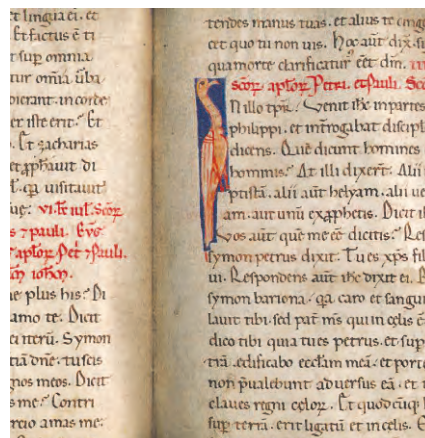 t lingua ei. et
Et factus ē ti
t sup omnia
tur omīa ūba
oierant in corde
et iste erit? Et
. Et zacharias
et ꝓphauit di
l. q̄a uisitauit
uę: vi. kł iul. Scōꝝ
s ⁊ pauli. Eūg
aplōꝝ Pet̄ ⁊ Pauli.
scd̄m ioh̄em.
e plus his? Di
amo te. Dicit
ei iterū. Symon
tiā dn̄e: tu scis
gnos meos. Dicit
s me? Contri
rcio amas me:
tendes manus tuas. et alius te cing
cet quo tu non uis. Hoc aūt dix. si
qua morte clarificatur' eēt dm̄. III
Scōꝝ aplōꝝ Petri. et Pauli. Sco
IN illo tp̄r. Venit ihc̄ in partes
philippi. et int̄rogabat discipl
dicens. Quē dicunt homines
hominis? At illi dixer̄t. Alii
ptistā. alii aūt helyam. alii ue
am. aut unū ex ꝓphetis. Dicit i
Vos aūt quē me eē dicitis? Res
symon petrus dixit. Tu es xp̄s fil
ui. Respondens aūt ihc̄ dixit ei. B
symon bariona. q̄a caro et sangui
lauit tibi. sed pat̄ m̄s qui in celis ē
dico tibi quia tu es petrus. et sup
trā. edificabo ecclam meā. et porte
non p̄ualebunt aduersus eā. et t
claues regni celoꝝ. Et quodcūq; l
sup terrā. erit ligatū et in celis. E